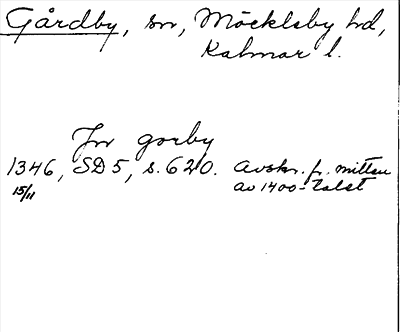 Gårdby, sn, Möckleby hd,
Kalmar l.
Jn gorby
1346, SD 5, s. 620. Avskr. fr. mitten
15/11 av 1400-talet